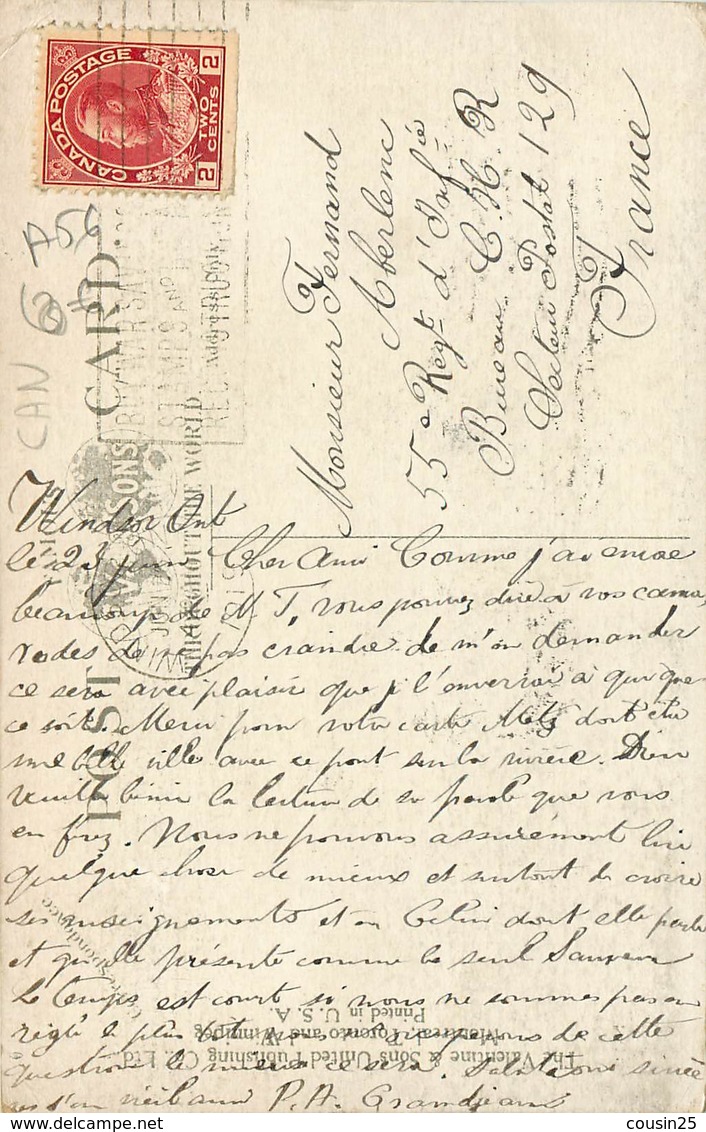 CANADA POSTAGE
2 TWO CENTS 2
A56
CAN
POST CARD
BUY WAR SAVINGS
STAMPS AND
THROUGHOUT THE WORLD
Address
Monsieur Fernand
Aberlenc
55e Regt d'Infie
Bureau C. H. R
Secteur Postal 129
France
Windsor Ont
le 23 juin Cher Ami Comme j'ai encore
beaucoup de N. T, vous pouvez dire à vos cama,
rades de ne pas craindre de m'en demander
ce sera avec plaisir que j l'enverrai à qui que
ce soit. Merci pour votre carte Metz doit être
une belle ville avec ce pont sur la rivière. Dieu
veuille bénir la lecture de sa parole que vous
en firez. Nous ne pouvons assurément lire
quelque chose de mieux et surtout de croire
ses enseignements et en Celui dont elle parle
et qu'elle présente comme le seul Sauveur
Le temps est court si nous ne sommes pas en
règle le plus tôt nous de cette
question le mieux ce sera. Salutations
P. A. Grandjean
Correspondence
The Valentine & Sons United Publishing Co. Ltd.
Montreal, Toronto and Winnipeg
Printed in U. S. A.
cousin25